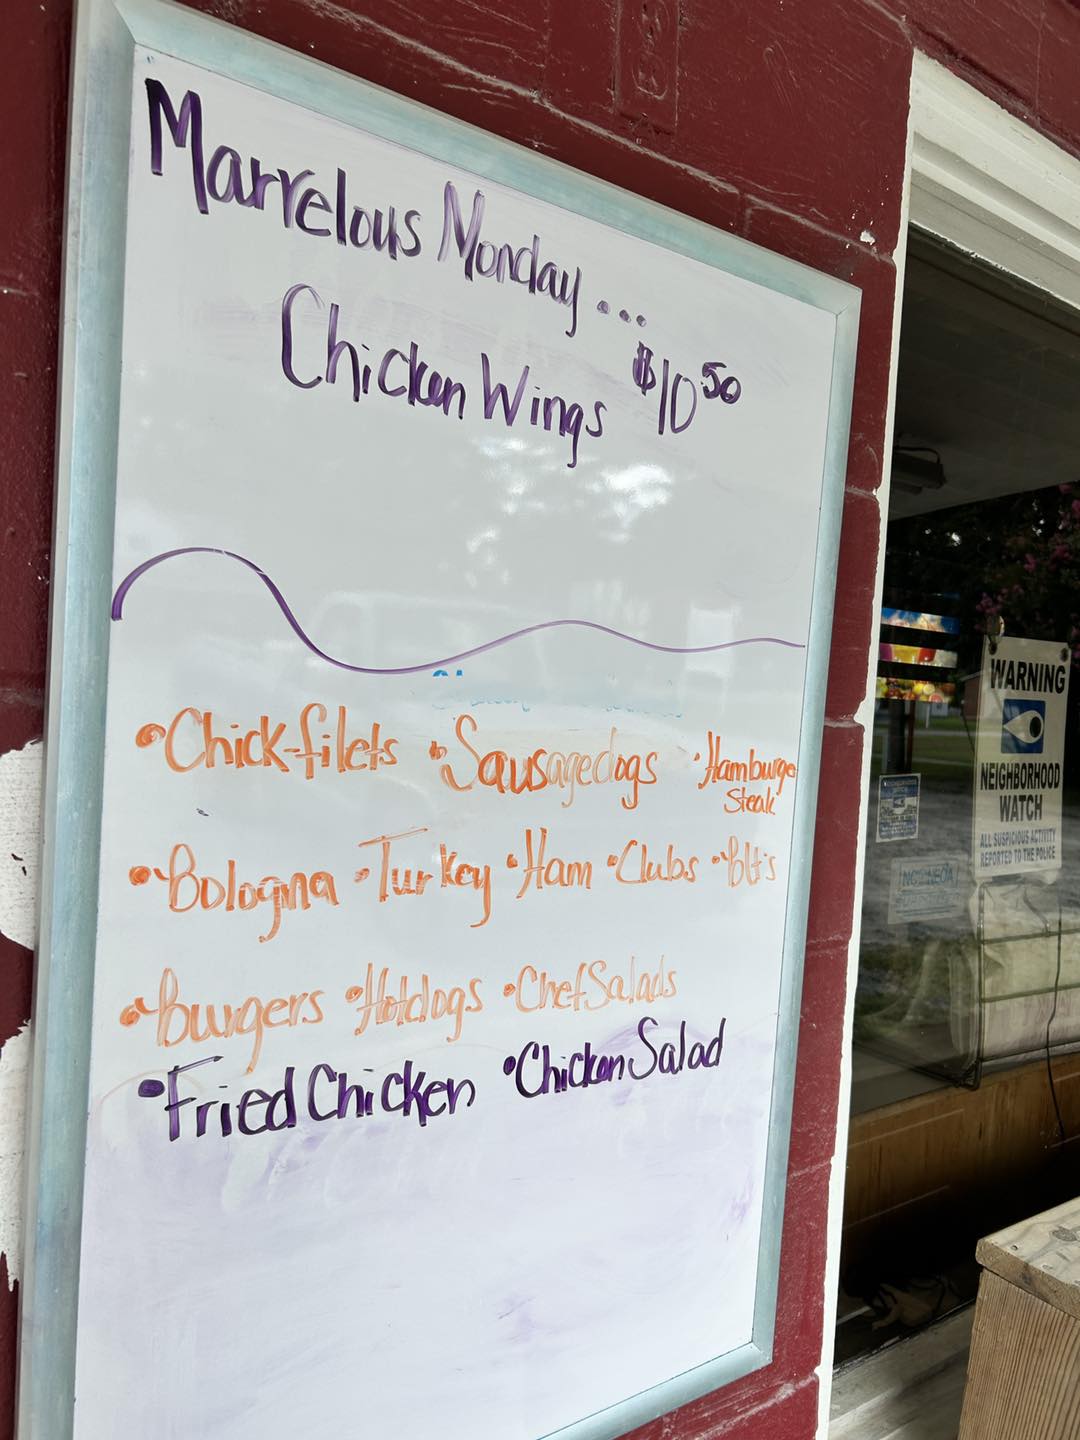 Marvelous Monday...
Chicken Wings $10 50
• Chick-filets • Sausagedogs • Hamburger
Steak
• Bologna • Turkey • Ham • Clubs • Blt's
• Burgers • Hotdogs • Chef Salads
• Fried Chicken • Chicken Salad
WARNING
NEIGHBORHOOD
WATCH
ALL SUSPICIOUS ACTIVITY
REPORTED TO THE POLICE